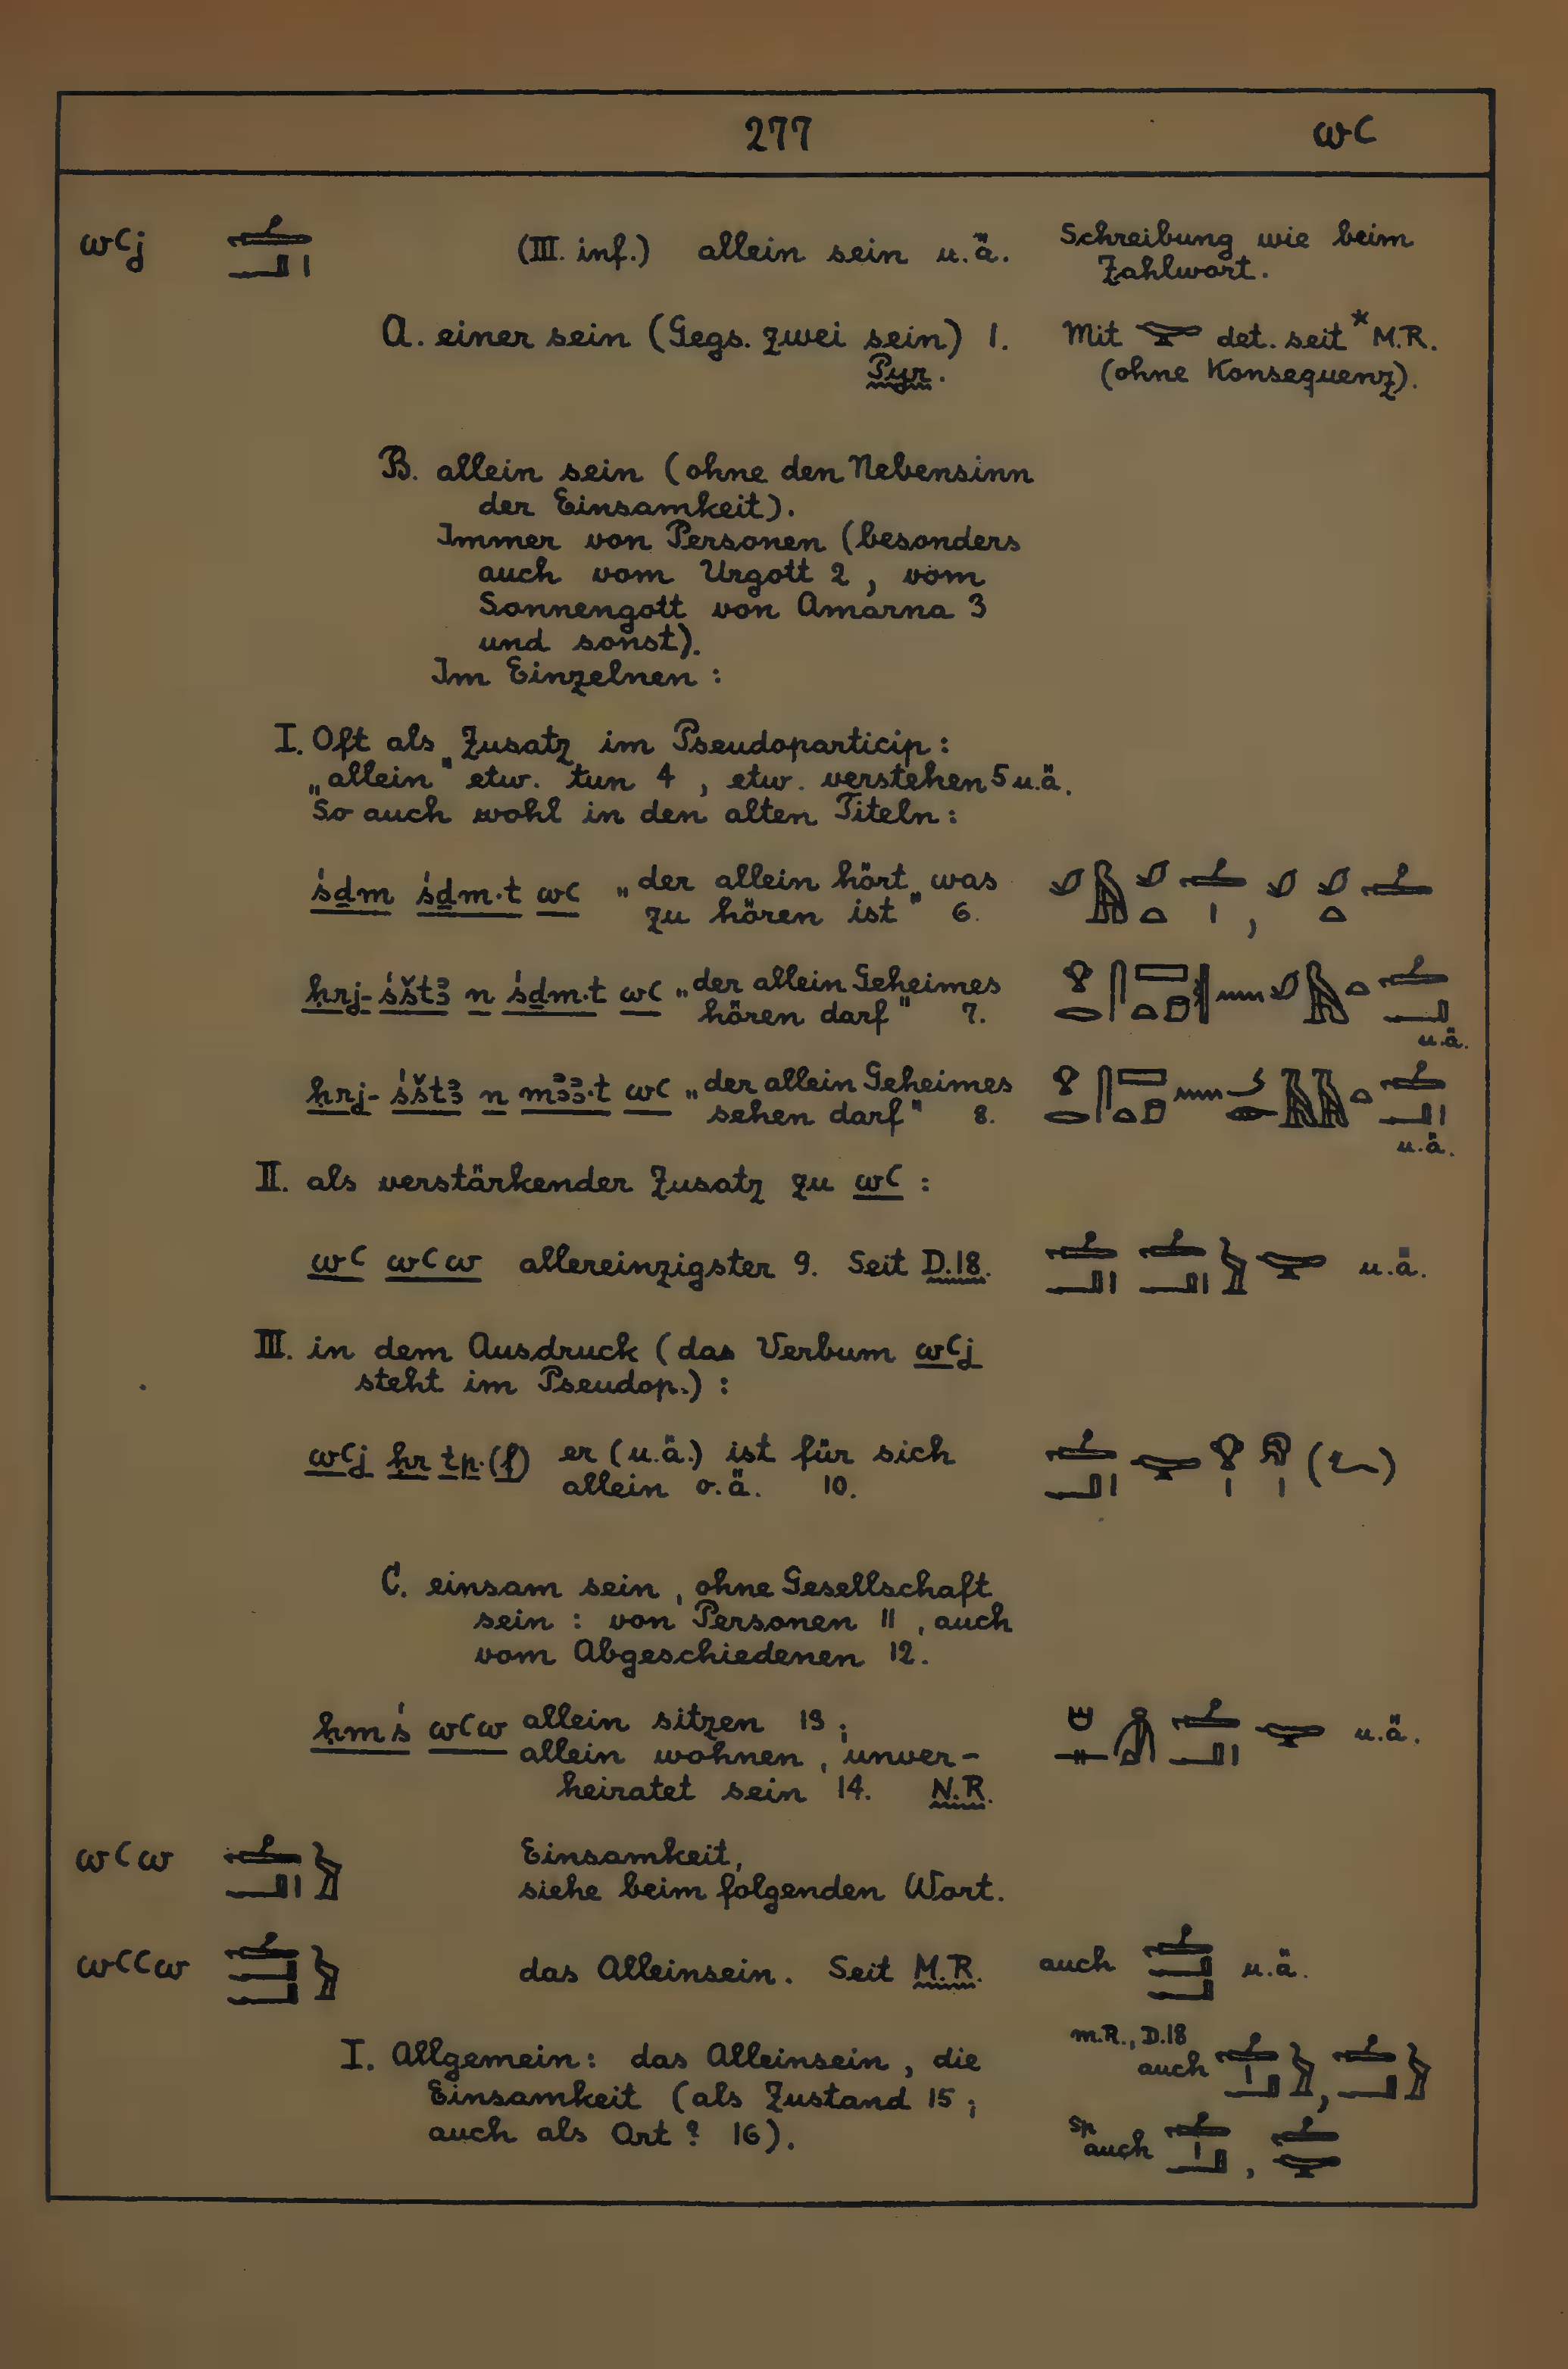 277 wꜥ
wꜥj (III. inf.) allein sein u.ä. Schreibung wie beim
Zahlwort.
A. einer sein (Gegs. zwei sein) 1. Mit det. seit * M.R.
Pyr. (ohne Konsequenz).
B. allein sein (ohne den Nebensinn
der Einsamkeit).
Immer von Personen (besonders
auch vom Urgott 2, vom
Sonnengott von Amarna 3
und sonst).
Im Einzelnen:
I. Oft als Zusatz im Pseudoparticip:
„allein" etw. tun 4, etw. verstehen 5 u.ä.
So auch wohl in den alten Titeln:
śḏm śḏm.t wꜥ „der allein hört, was
zu hören ist" 6.
ḥrj-śštꜣ n śḏm.t wꜥ „der allein Geheimes
hören darf" 7.
u.ä.
ḥrj-śštꜣ n mꜣꜣ.t wꜥ „der allein Geheimes
sehen darf" 8.
u.ä.
II. als verstärkender Zusatz zu wꜥ:
wꜥ wꜥw allereinzigster 9. Seit D.18. u.ä.
III. in dem Ausdruck (das Verbum wꜥj
steht im Pseudop.):
wꜥj ḥr tp.(f) er (u.ä.) ist für sich
allein o.ä. 10.
C. einsam sein, ohne Gesellschaft
sein: von Personen 11, auch
vom Abgeschiedenen 12.
ḥmś wꜥw allein sitzen 13; u.ä.
allein wohnen, unver-
heiratet sein 14. N.R.
wꜥw Einsamkeit,
siehe beim folgenden Wort.
wꜥꜥw das Alleinsein. Seit M.R. auch u.ä.
I. Allgemein: das Alleinsein, die
Einsamkeit (als Zustand 15;
auch als Ort? 16).
m.R., D.18
auch ,
Sp
auch ,